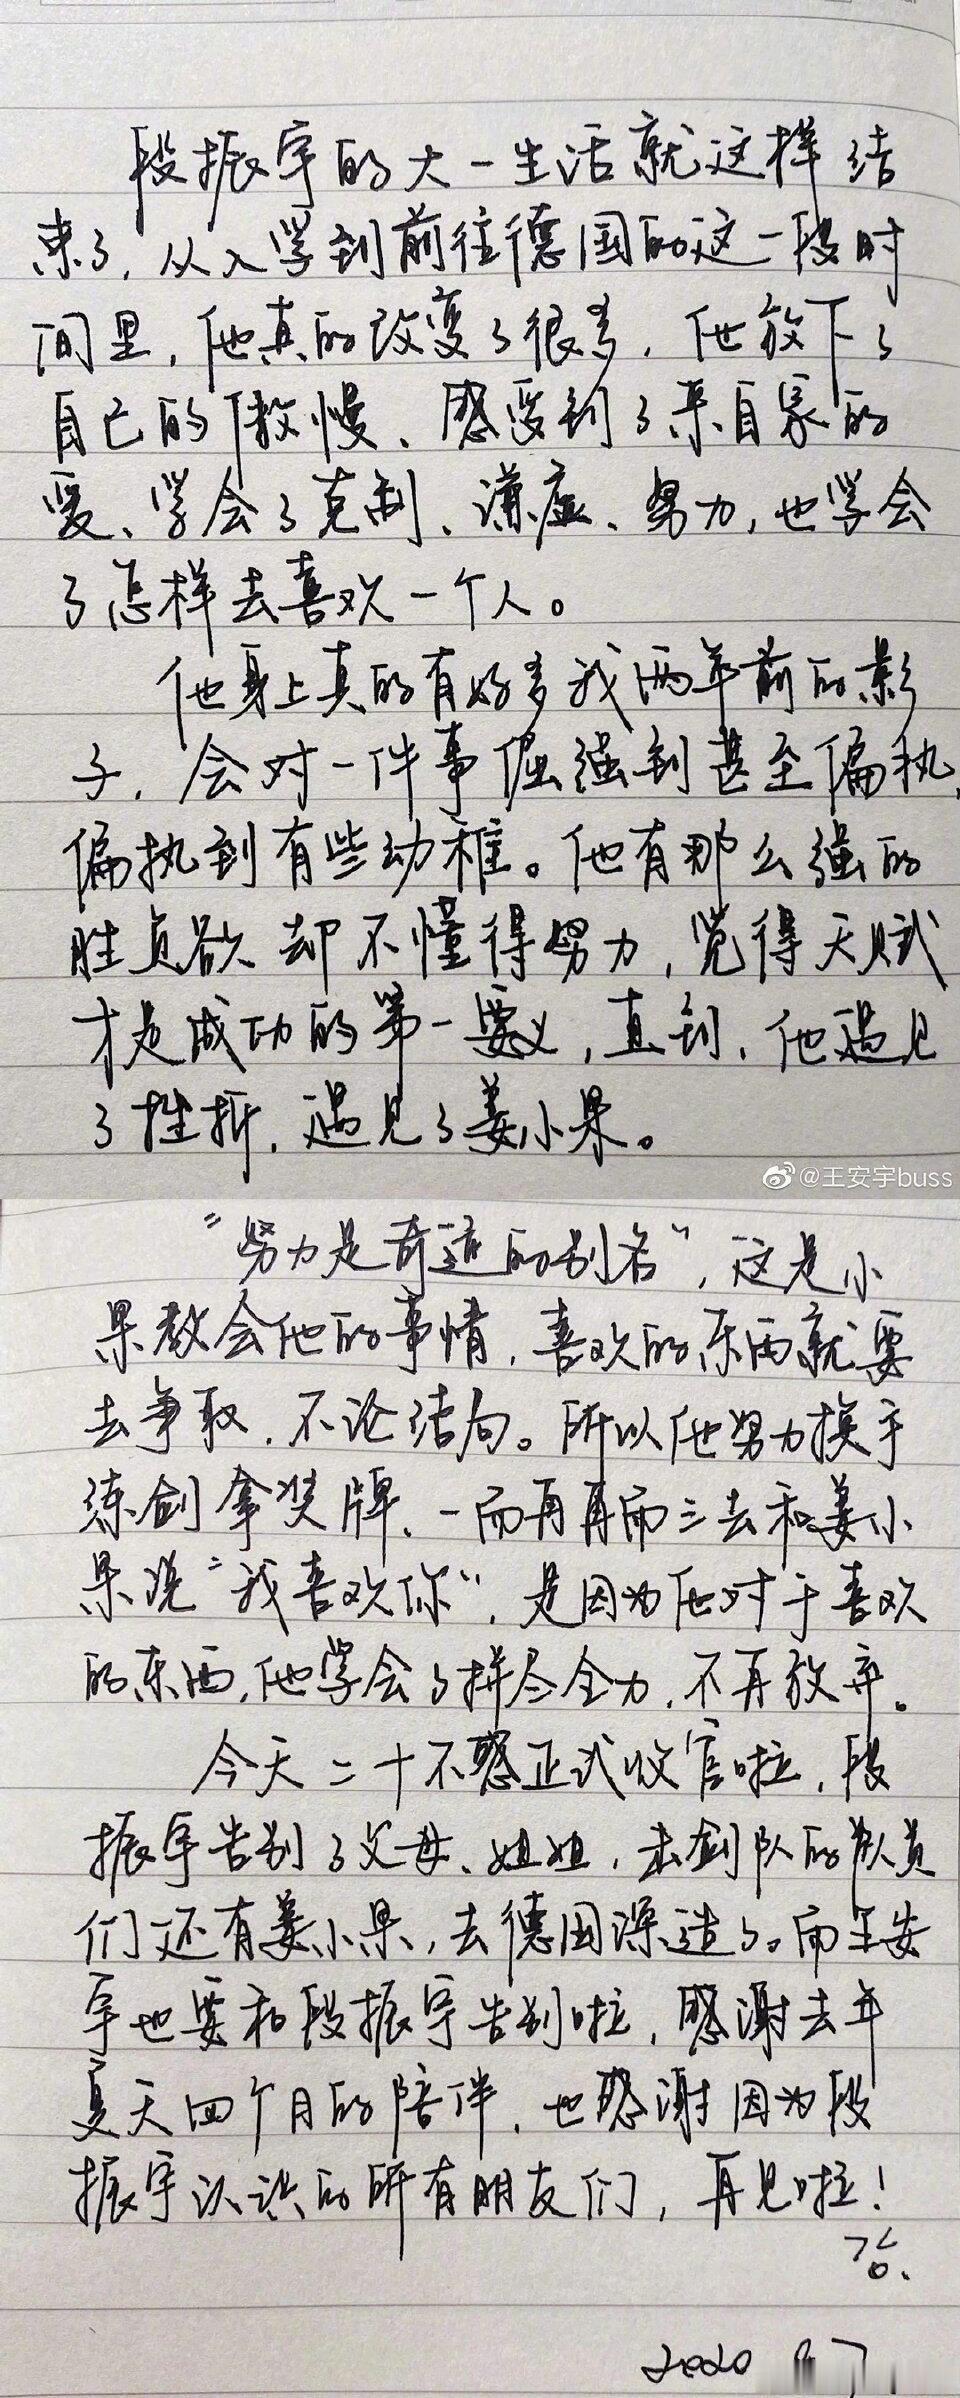 段振宇的大一生活就这样结
束了，从入学到前往德国的这一段时
间里，他真的改变了很多，他放下了
自己的傲慢、感受到了来自家的
爱、学会了克制、谦虚、努力，也学会
了怎样去喜欢一个人。
他身上真的有好多我两年前的影
子，会对一件事倔强到甚至偏执，
偏执到有些幼稚。他有那么强的
胜负欲却不懂得努力，觉得天赋
才是成功的第一要义，直到，他遇见
了挫折，遇见了姜小果。
@王安宇buss
“努力是奇迹的别名”，这是小
果教会他的事情，喜欢的东西就要
去争取，不论结局。所以他努力换手
练剑拿奖牌、一而再再而三去和姜小
果说“我喜欢你”，是因为他对于喜欢
的东西，他学会了拼尽全力，不再放弃。
今天二十不惑正式收官啦，段
振宇告别了父母、姐姐，击剑队的队员
们还有姜小果，去德国深造了。而王安
宇也要和段振宇告别啦，感谢去年
夏天四个月的陪伴，也感谢因为段
振宇认识的所有朋友们，再见啦！
2020